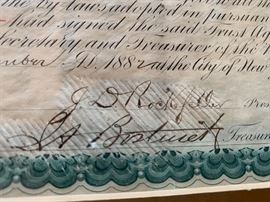 by laws adopted in pursuan
had signed the said Trust
Secretary and Treasurer of the
mber, D. 1882 at the City of New
J D Rockefeller Pres
Treasurer